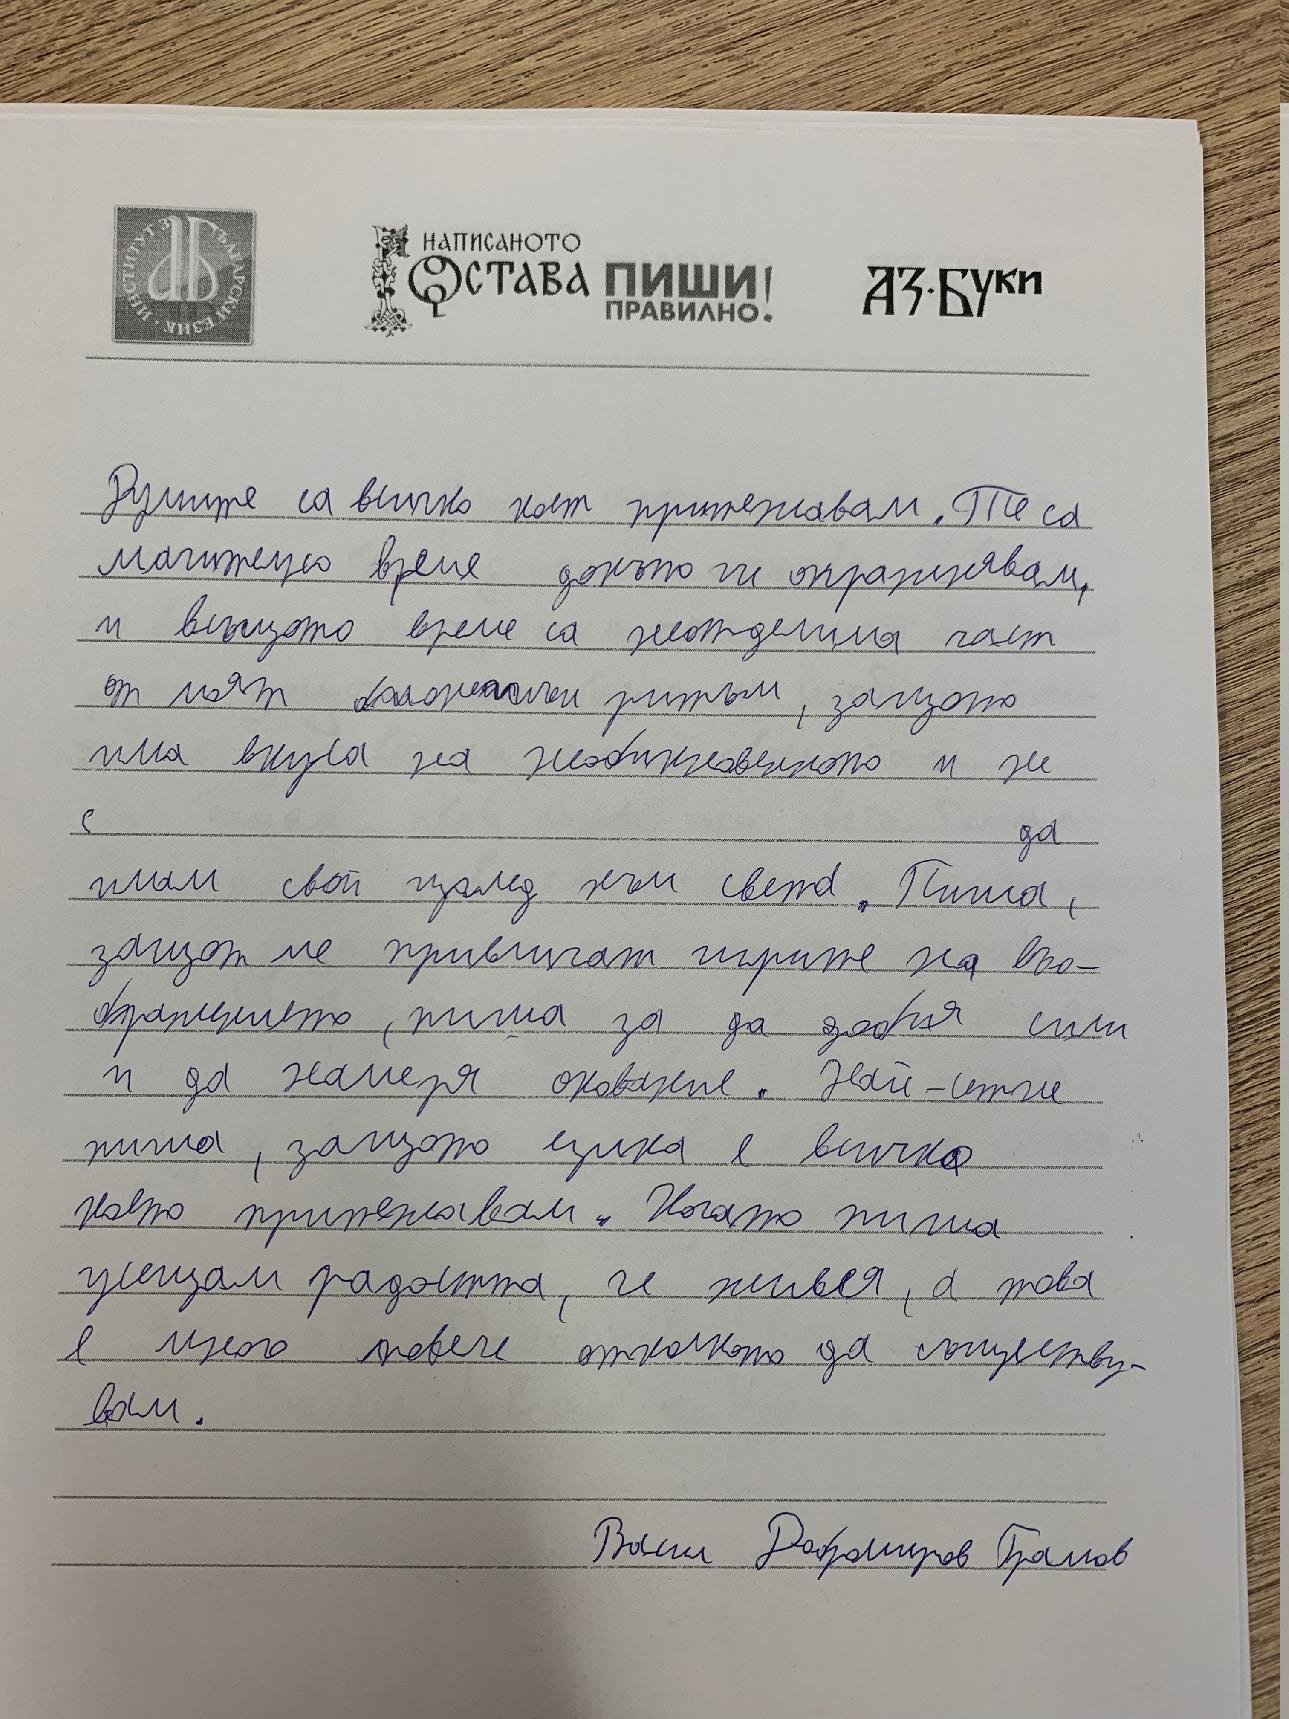 ИНСТИТУТ ЗА БЪЛГАРСКИ ЕЗИК
НАПИСАНОТО
ОСТАВА ПИШИ
ПРАВИЛНО!
АЗ·БУКИ
Думите са всичко коет притежавам. Те са
време докато ги опражнявам,
и всъщото време са неотделима част
от моят ритъм, защото
има вкуса на необикновеното и не
е да
имам свой изглед към света. Пиша,
защот ме привличат игрите на въо-
бражението, пиша за да добия сили
и да намеря окование. Най-сетне
пиша, защото езика е всичко
което притежавам. Когато пиша
усещам радостта, че живея, а това
е много повече отколкото да съществу-
вам.
Васил Добромиров Грамов